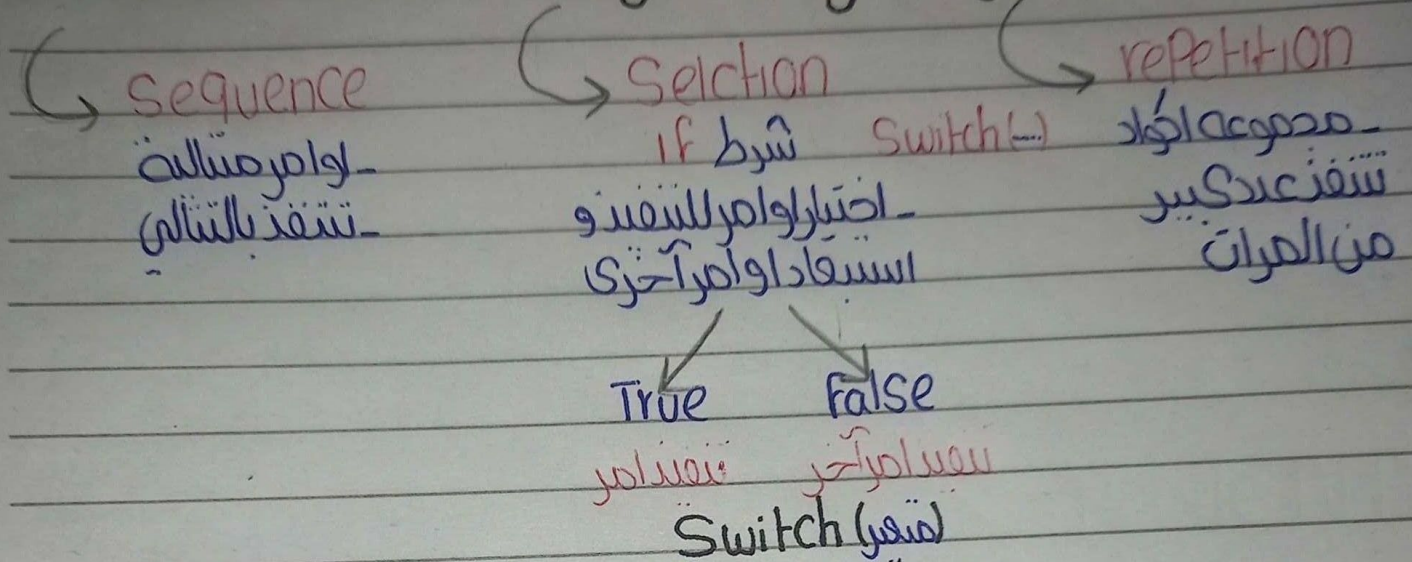 Sequence
- اوامر متتالية
- تنفذ بالتتالي
Selction
if شرط Switch(--)
- اختيار اوامر للتنفيذ و
استبعاد اوامر آخرى
True False
تنفيذ امر تنفيذ امر آخر
Switch (متغير)
repetition
- مجموعة اكواد
تنفذ عدد كبير
من المرات